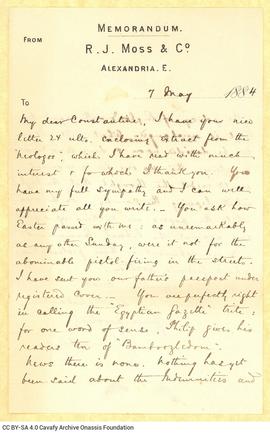 MEMORANDUM.
FROM
R. J. Moss & Co.
ALEXANDRIA, E.
7 May 1884
TO
My dear Constantine, I have your nice
letter 24 ulto. enclosing extract from the
"Neologos", which I have read with much
interest & for which I thank you. You
have my full sympathy and I can well
appreciate all you write. _ You ask how
Easter passed with me: as unremarkably
as any other Sunday, were it not for the
abominable pistol-firing in the streets.
I have sent you our father's passport under
registered cover. _ You are perfectly right
in calling the "Egyptian Gazette" trite:
for one word of sense, Philip gives his
readers ten of "Bamboozledom".
News there is none. Nothing has yet
been said about the Indemnities and
CC BY-SA 4.0 Cavafy Archive Onassis Foundation